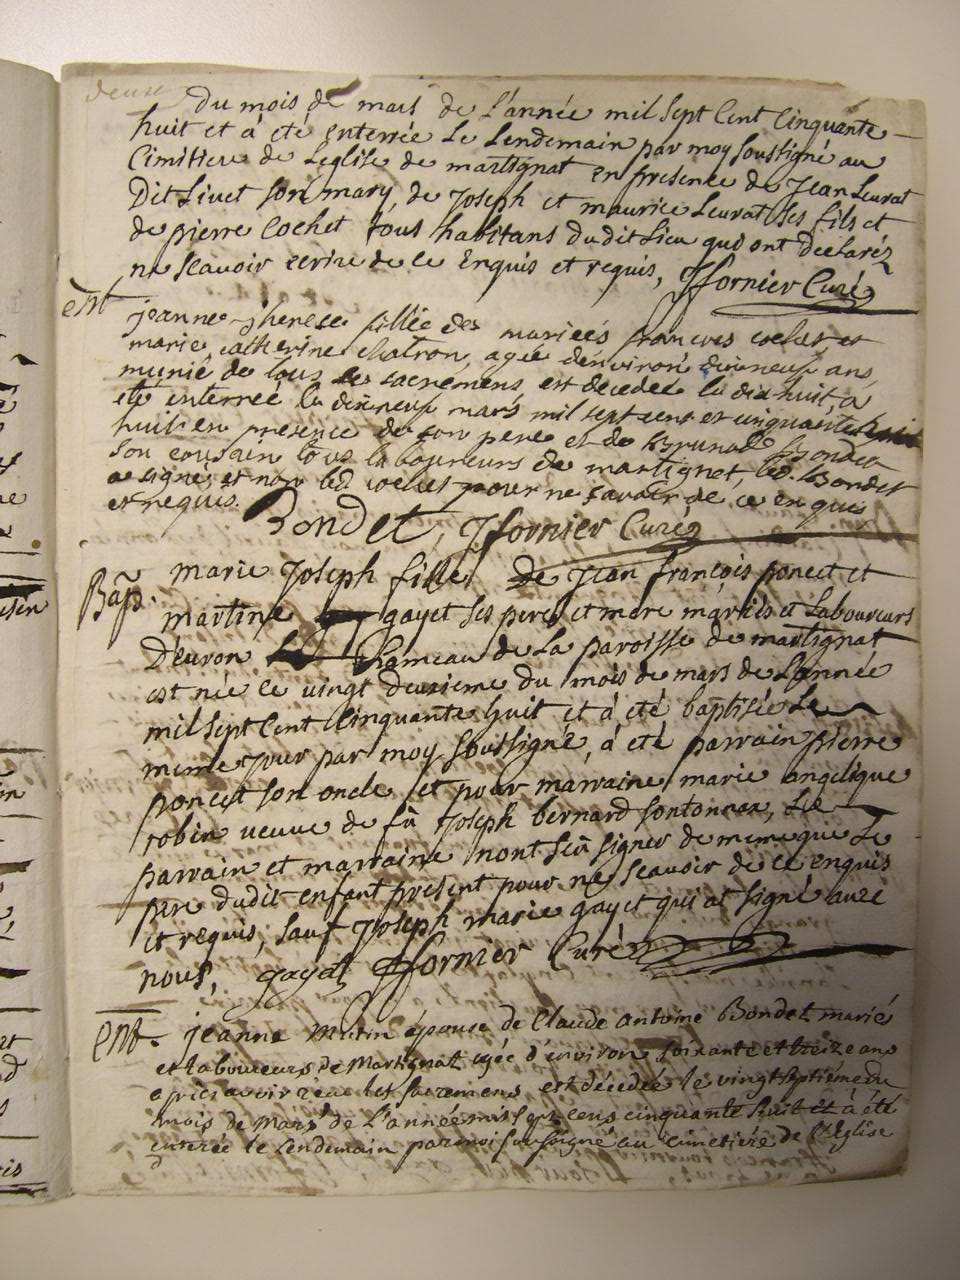 du mois de mars de L'année mil sept Cent Cinquante
huit et à été enterrée Le Lendemain par moy soussigné au
Cimitiere de Leglise de martignat en presence de Jean Leurat
Dit Livet son mary, de Joseph et maurice Leurat ses fils et
de pierre Cochet tous habitans dudit Lieu qui ont declarez
ne sçavoir ecrire de ce Enquis et requis, Jfornier Curé
ent
jeanne Therese fillie des mariées françois cochet et
marie catherine chatron, agée denviron dixneuf ans,
munie de tous les sacremens, est decedée le dix huit, a
été enterrée le dixneuf mars mil sept cens et cinquante huit
huit en presence de son pere et de Bondet
son cousin tous laboureurs de martignat, led. Bondet
a signé, et non led cochet pour ne savoir de ce enquis
et requis. Bondet, Jfornier Curé
Bap.
marie Joseph fille de Jean françois poncet et
martine gayet ses pere et mere mariés et Laboureurs
D'evron hameau de La paroisse de martignat
est née le vingt deuxieme du mois de mars de L'année
mil sept Cent Cinquante huit et à été baptisée Le
meme jour par moy soussigné, à été parrain pierre
poncet son oncle et pour marraine marie angelique
robin veuve de fû Joseph bernard , Le
parrain et marraine nont sçû signer de meme que Le
pere dudit enfant present pour ne sçeavoir de ce enquis
et requis, sauf Joseph marie gayet qui at signé avec
nous, gayet Jfornier Curé
Ent.
jeanne épouse de Claude antoine Bondet mariés
et Laboureurs de Martignat agée d'environ soixante et treize ans
après avoir recu les sacremens est décedée le vingt septieme du
mois de Mars de L'année mil sept cens cinquante huit et à été
enterrée le Lendemain par moi soussigné au cimetiere de l'Eglise